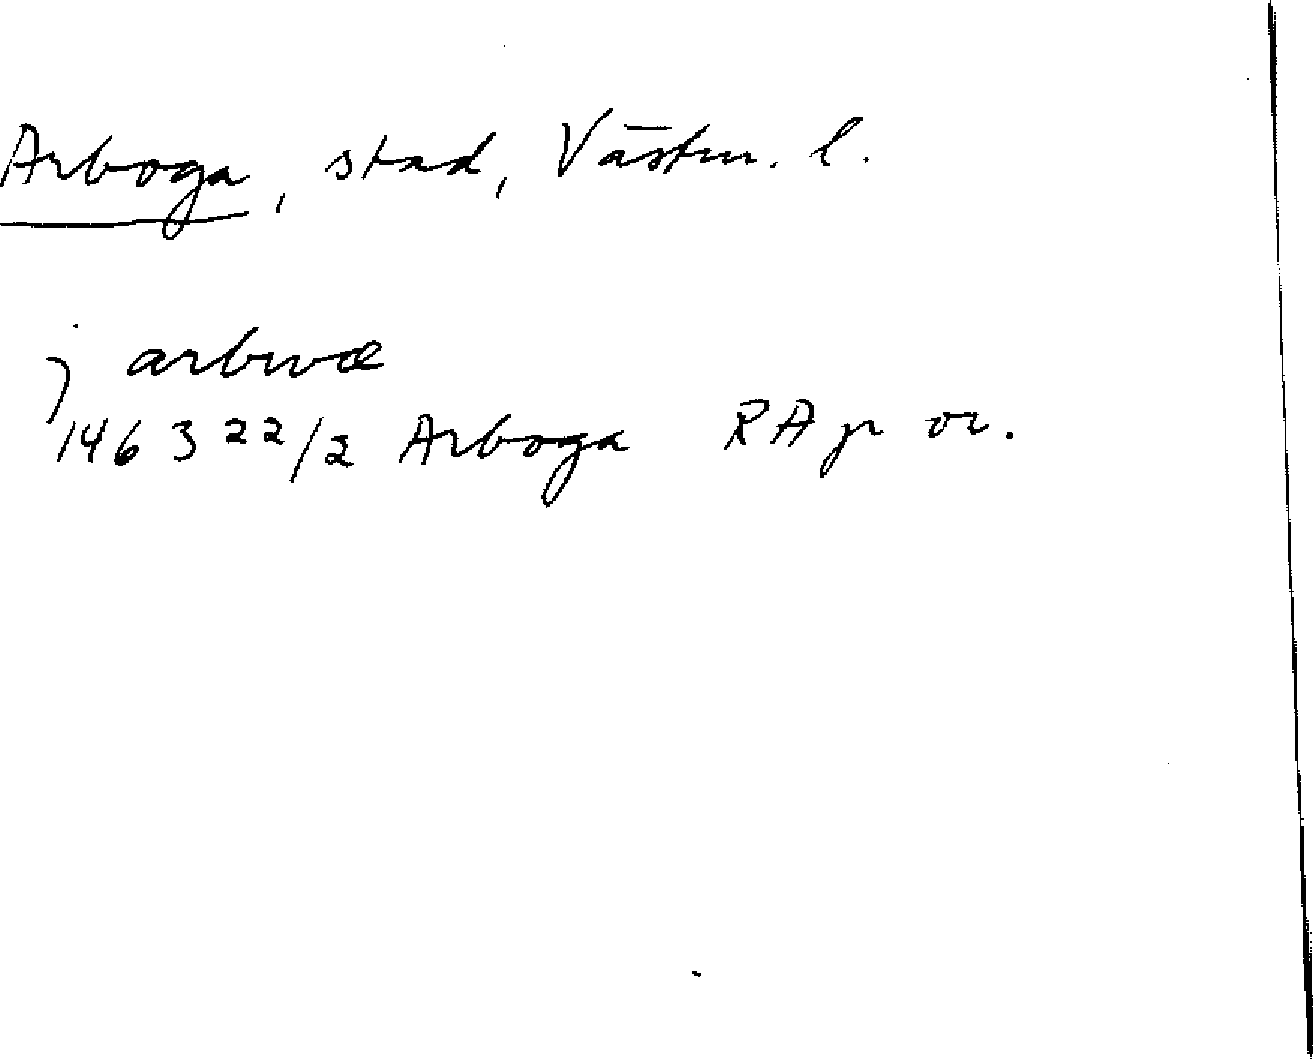 Arboga, stad, Västm. l.
j arbwæ
1463 22/2 Arboga RAp or.